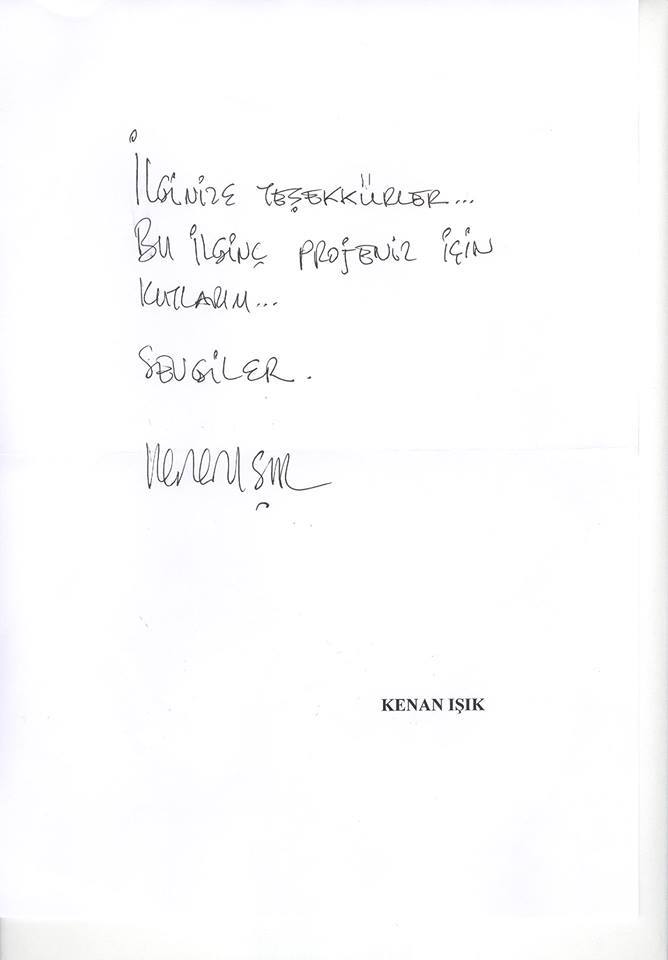 İlginize teşekkürler...
Bu ilginç projeniz için
kutlarım...
Sevgiler.
Kenan Işık
KENAN IŞIK